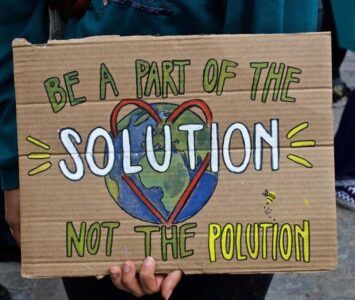 BE A PART OF THE
SOLUTION
NOT THE POLUTION